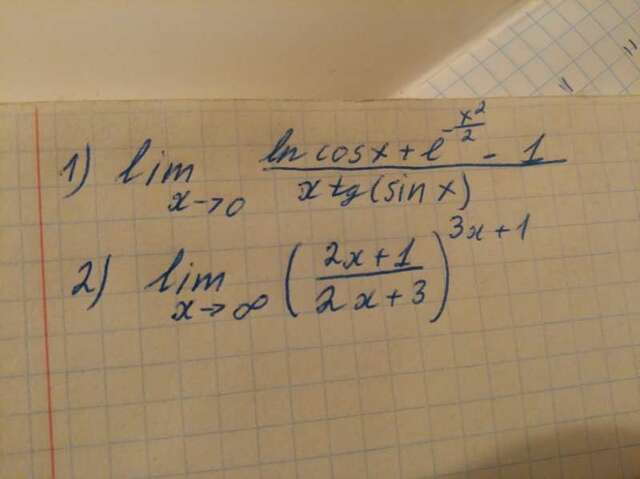 1) lim x→0 (ln cosx + e^(-x²/2) - 1)/(x tg(sin x))
2) lim x→∞ ((2x+1)/(2x+3))^(3x+1)